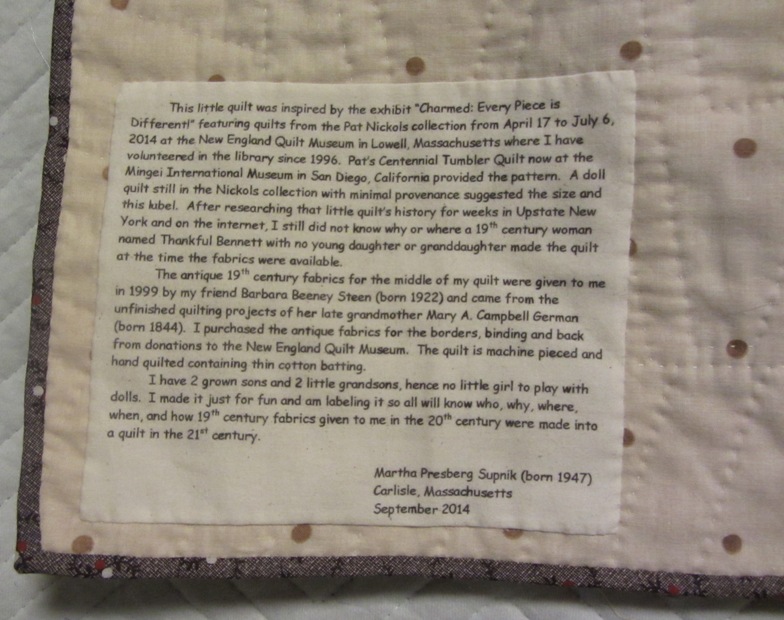 This little quilt was inspired by the exhibit "Charmed: Every Piece is
Different!" featuring quilts from the Pat Nickols collection from April 17 to July 6,
2014 at the New England Quilt Museum in Lowell, Massachusetts where I have
volunteered in the library since 1996. Pat's Centennial Tumbler Quilt now at the
Mingei International Museum in San Diego, California provided the pattern. A doll
quilt still in the Nickols collection with minimal provenance suggested the size and
this label. After researching that little quilt's history for weeks in Upstate New
York and on the internet, I still did not know why or where a 19th century woman
named Thankful Bennett with no young daughter or granddaughter made the quilt
at the time the fabrics were available.
The antique 19th century fabrics for the middle of my quilt were given to me
in 1999 by my friend Barbara Beeney Steen (born 1922) and came from the
unfinished quilting projects of her late grandmother Mary A. Campbell German
(born 1844). I purchased the antique fabrics for the borders, binding and back
from donations to the New England Quilt Museum. The quilt is machine pieced and
hand quilted containing thin cotton batting.
I have 2 grown sons and 2 little grandsons, hence no little girl to play with
dolls. I made it just for fun and am labeling it so all will know who, why, where,
when, and how 19th century fabrics given to me in the 20th century were made into
a quilt in the 21st century.
Martha Presberg Supnik (born 1947)
Carlisle, Massachusetts
September 2014